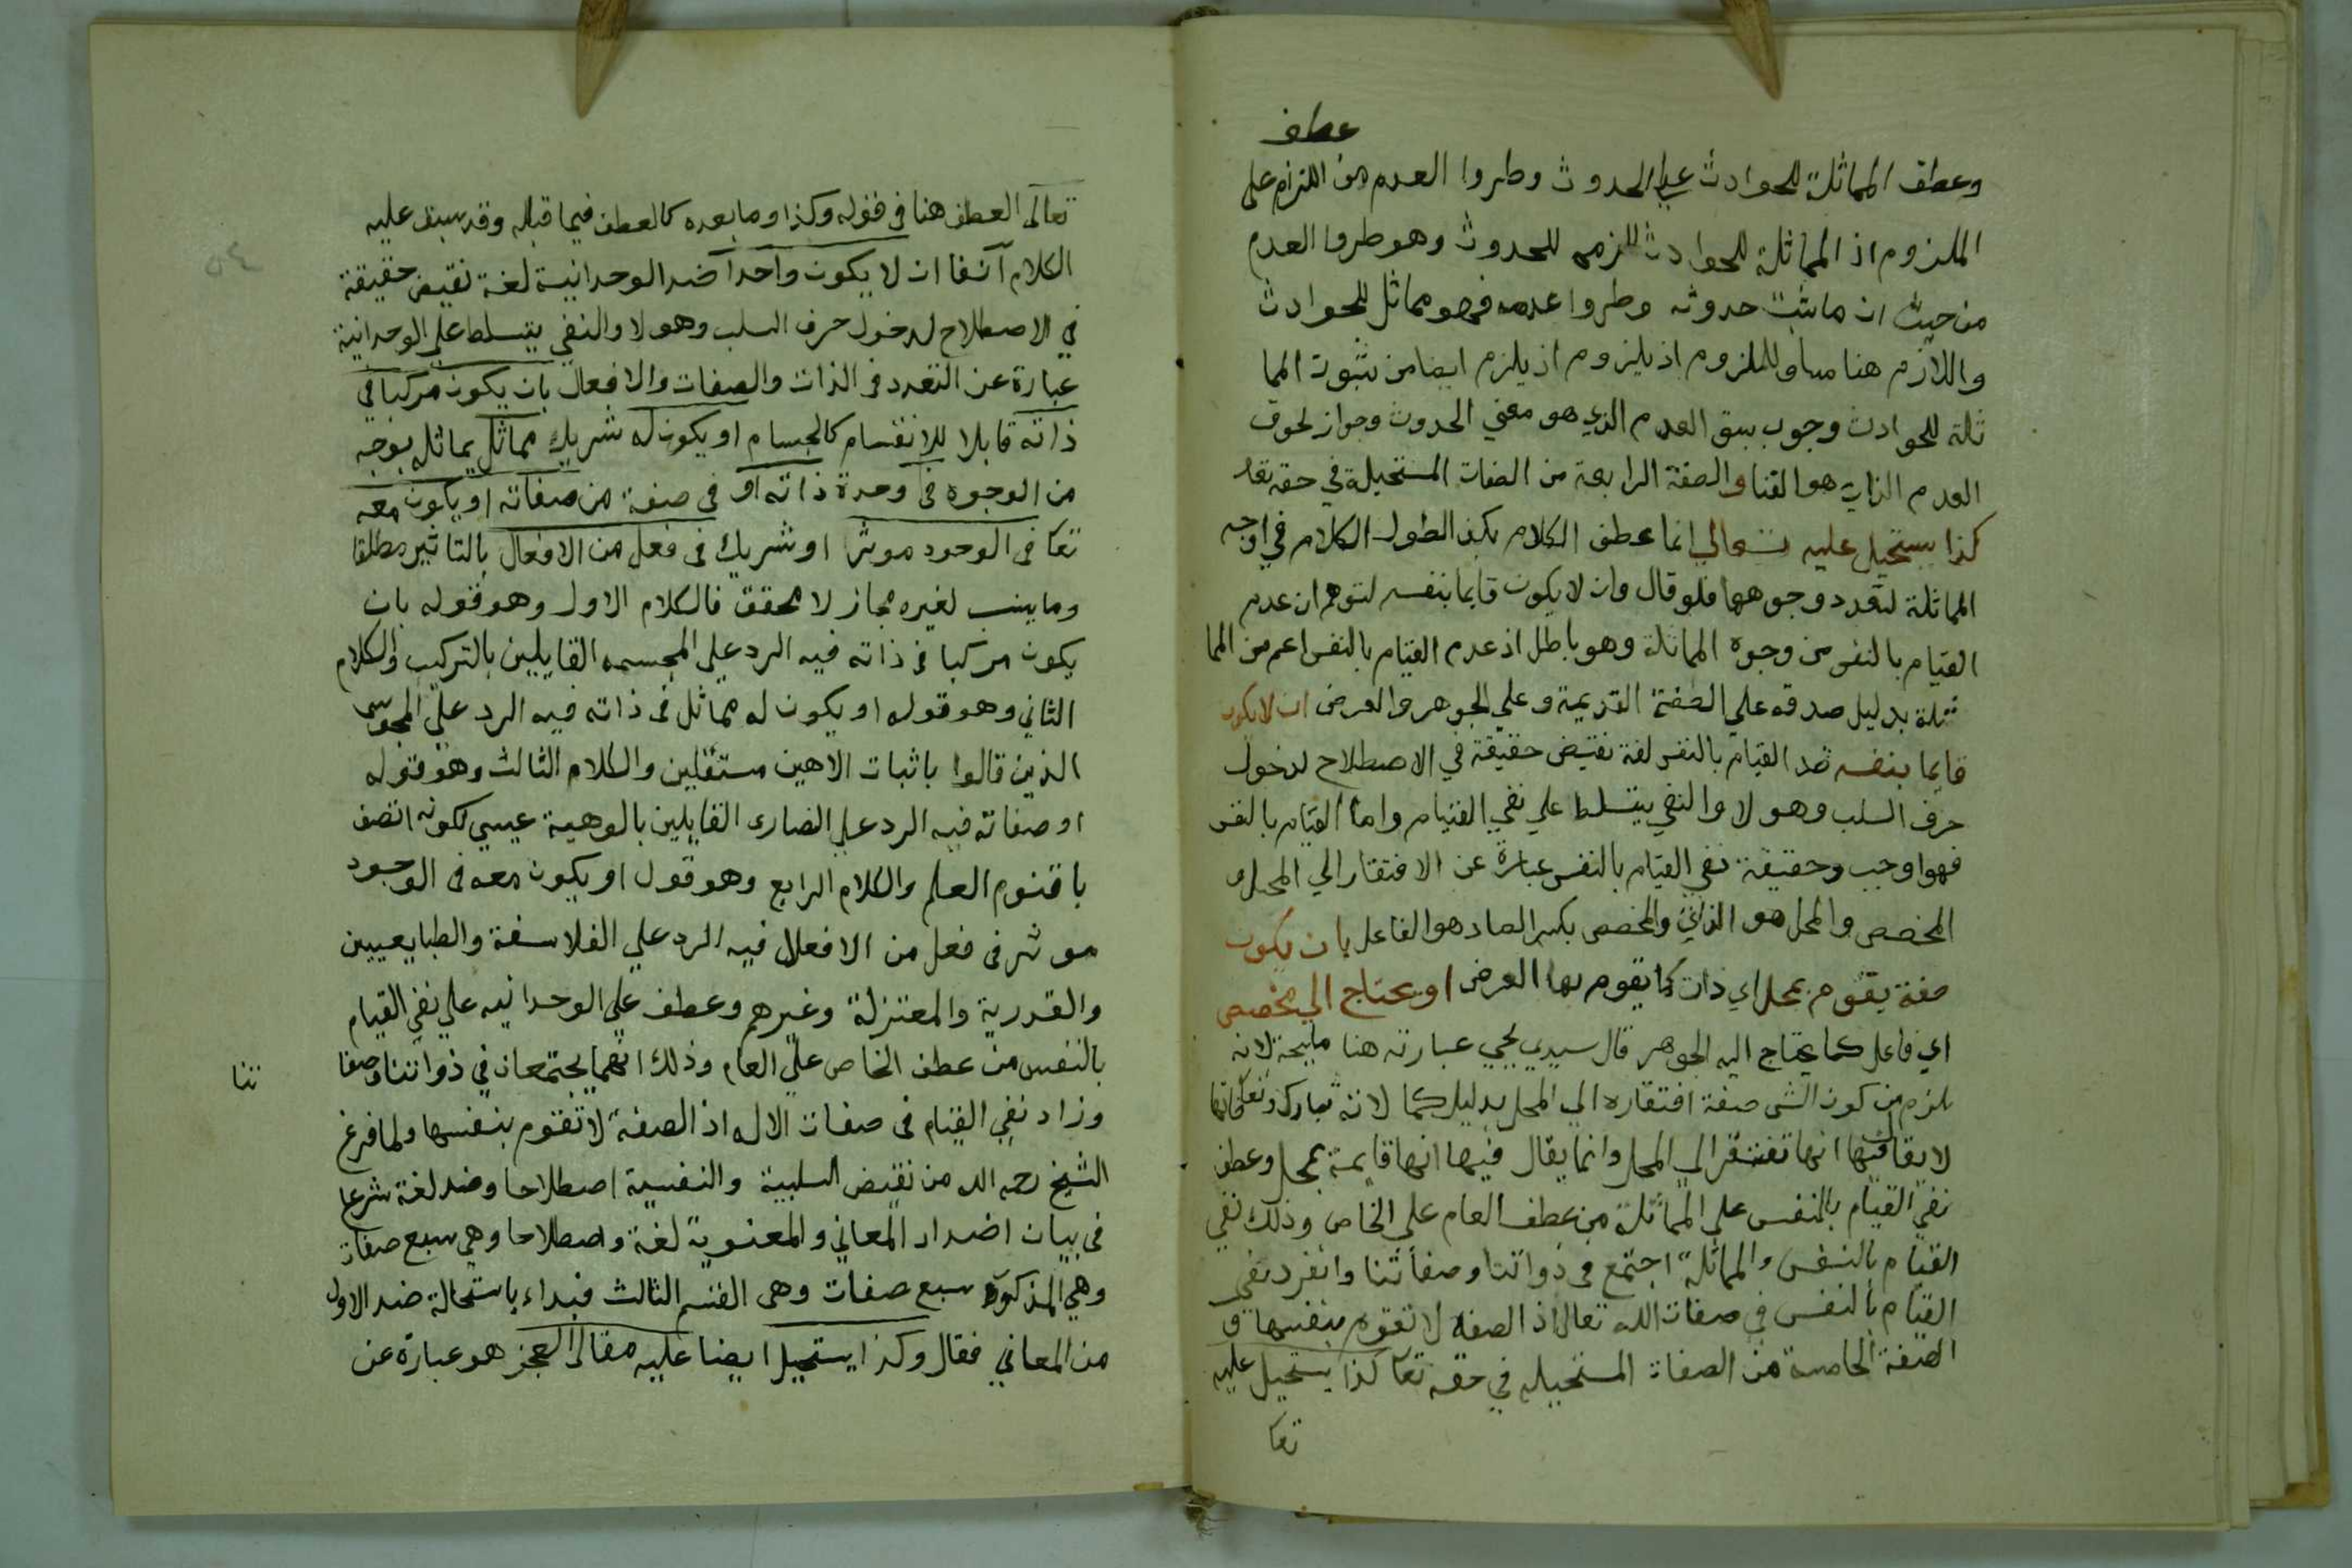 عطف
وعطف المماثلة للحوادث علي الحدوث وطروا العدم من اللزام علي
الملزوم اذ المماثلة للحوادث للحدوث وهو طروا العدم
من حيث ان ما ثبت حدوثه وطروا عدمه فهو مماثل للحوادث
واللازم هنا مساو للملزوم اذ يلزوم اذ يلزم ايضا من ثبوت المما
ثلة للحوادث وجوب سبق العدم الذي هو معني الحدوث وجواز لحوق
العدم الذي هو الفنا والصفة الرابعة من الصفات المستحيلة في حقه تعا
كذا يستحيل عليه تعالي انما عطف الكلام بكذا لطول الكلام في اوجه
المماثلة لتعدد وجوهها فلو قال وان لا يكون قايما بنفسه لتوهم ان عدم
القيام بالنفس من وجوه المماثلة وهو باطل اذ عدم القيام بالنفس اعم من المما
ثلة بدليل صدقه علي الصفة القديمة وعلي الجوهر والعرض ان لا يكون
قايما بنفسه ضد القيام بالنفس لغة نقيض حقيقة في الاصطلاح لدخول
حرف السلب وهو لا والنفي يتسلط علي نفي القيام واما القيام بالنفس
فهو اوجب وحقيقة نفي القيام بالنفس عبارة عن الافتقار الي المحل و
المخصص والمحل هو الذات والمخصص بكسر الصاد هو الفاعل بان يكون
صفة يقوم بمحل اي ذات كما يقوم بها العرض او يحتاج الي مخصص
اي فاعل كما يحتاج اليه الجوهر قال سيدي يحيي عبارته هنا مليحة لانه
يلزم من كون الشي صفة افتقاره الي المحل بدليل كما لاته تبارك وتعا فانها
لا يقال فيها انها تفتقر الي المحل وانما يقال فيها انها قايمة بمحل وعطف
نفي القيام بالنفس علي المماثلة من عطف العام علي الخاص وذلك نفي
القيام بالنفس والمماثلة اجتمع في ذواتنا وصفاتنا وانفرد نفي
القيام بالنفس في صفات الله تعالي اذ الصفه لا تقوم بنفسها و
الصفة الخامسة من الصفات المستحيله في حقه تعا كذا يستحيل عليه
تعا
تعالي العطف هنا في قوله وكذا وما بعده كالعطف فيما قبله وقد سبق عليه
الكلام آنفا ان لا يكون واحدا ضد الوحدانية لغة نقيض حقيقة
في الاصطلاح لدخول حرف السلب وهو لا والنفي يتسلط علي الوحدانية
عبارة عن التعدد في الذات والصفات والافعال بان يكون مركبا في
ذاته قابلا للانقسام كالجسام او يكون له شريك مماثل يماثله بوجه
من الوجوه في وحدة ذاته او في صفة من صفاته او يكون معه
تعا في الوجود موثرا او شريك في فعل من الافعال بالتاثير مطلقا
وما ينسب لغيره مجاز لا محقق فالكلام الاول وهو قوله بان
يكون مركبا في ذاته فيه الرد علي المجسمه القايلين بالتركيب والكلام
الثاني وهو قوله او يكون له مماثل في ذاته فيه الرد علي المجوسي
الذين قالوا باثبات الاهين مستقلين والكلام الثالث وهو قوله
او صفاته فيه الرد علي النصاري القايلين بالوهية عيسي لكونه اتصف
باقنوم العلم والكلام الرابع وهو قول او يكون معه في الوجود
موثر في فعل من الافعلال فيه الرد علي الفلاسفة والطبايعيين
والقدرية والمعتزلة وغيرهم وعطف علي الوحدانيه علي نفي القيام
بالنفس من عطف الخاص علي العام وذلك انهما يجتمعان في ذواتنا وصفا
تنا
وزاد نفي القيام في صفات الاله اذ الصفة لا تقوم بنفسها ولما فرغ
الشيخ رحمه الله من نقيض السلبية والنفسية اصطلاحا وضد لغة شرعا
في بيان اضداد المعاني والمعنوية لغة واصطلاحا وهي سبع صفات
وهي المذكوره سبع صفات وهي القسم الثالث فبداء باستحالة ضد الاول
من المعاني فقال وكذا يستحيل ايضا عليه مقالي العجز هو عبارة عن
٥٤